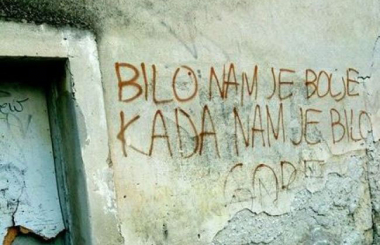 BILO NAM JE BOLJE
KADA NAM JE BILO
GORE